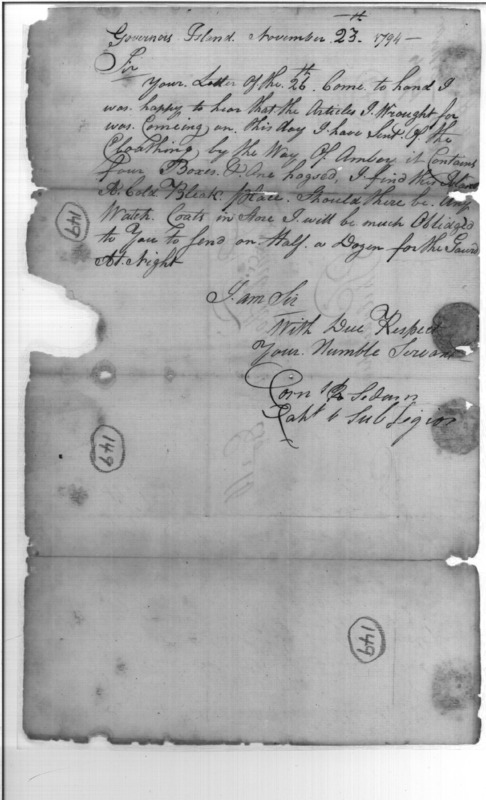 Governors Island November 23th 1794
Sir
Your Letter Of the 26th Come to hand I
was happy to hear that the Articles I Wrought for
was Comeing on This day I have Sent Of the
Cloathing by the Way Of Amboy it Contains
four Boxes & One hogsed I find this
A Cold Bleak place Should there be Any
Watch Coats in Store I will be much Oblidged
to You to Send on Half a Dozen for the Guard
At Night
I am Sir
With Due Respect
Your Humble Servant
Corn R Sedam
Capt Sub Legion
149
149
149